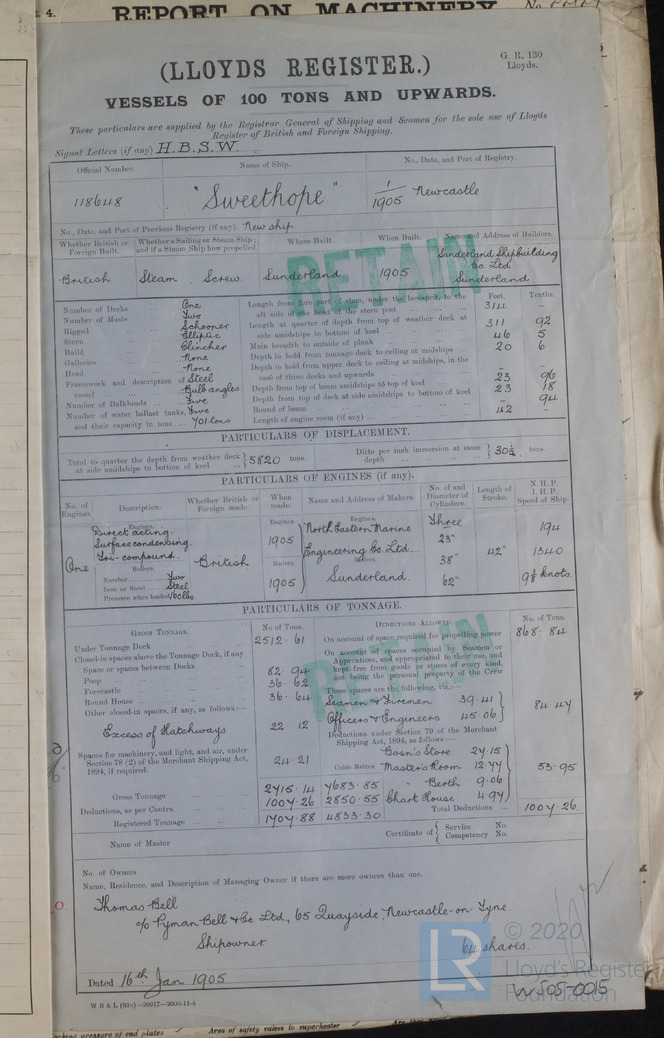 4.
REPORT ON MACHINERY No.
G. R. 130
Lloyds.
(LLOYDS REGISTER.)
VESSELS OF 100 TONS AND UPWARDS.
These particulars are supplied by the Registrar General of Shipping and Seamen for the sole use of Lloyds
Register of British and Foreign Shipping.
Signal Letters (if any) H.B.S.W.
Official Number. Name of Ship. No., Date, and Port of Registry.
118648 "Sweethope" 1/1905 Newcastle
No., Date, and Port of Previous Registry (if any) New ship
Whether British or Foreign Built. Whether a Sailing or Steam Ship; and if a Steam Ship how propelled Where Built. When Built. Name and Address of Builders.
British Steam Screw. Sunderland 1905 Sunderland Shipbuilding Co. Ltd Sunderland
RETAIN
Feet. Tenths.
Number of Decks One
Number of Masts Two
Rigged Schooner
Stern Elliptic
Build Clincher
Galleries None
Head None
Framework and description of vessel Steel Bulb angles
Number of Bulkheads Five
Number of water ballast tanks, and their capacity in tons Five 701 tons
Length from fore part of stem, under the bowsprit, to the aft side of the head of the stern post 314 -
Length at quarter of depth from top of weather deck at side amidships to bottom of keel 311 92
Main breadth to outside of plank 46 5
Depth in hold from tonnage deck to ceiling at midships 20 6
Depth in hold from upper deck to ceiling at midships, in the case of three decks and upwards - -
Depth from top of beam amidships to top of keel 23 96
Depth from top of deck at side amidships to bottom of keel 23 18
Round of beam - 94
Length of engine room (if any) 42 -
PARTICULARS OF DISPLACEMENT.
Total to quarter the depth from weather deck at side amidships to bottom of keel 5820 tons. Ditto per inch immersion at same depth 30½ tons.
PARTICULARS OF ENGINES (if any).
No. of Engines. Description. Whether British or Foreign made. When made. Name and Address of Makers. No. of and Diameter of Cylinders. Length of Stroke. N.H.P. I.H.P. Speed of Ship.
Engines. Engines Engines. Three
Direct acting. 1905 North Eastern Marine 23" 194
Surface condensing.
Tri-compound. British Engineering Co. Ltd. 38" 42" 1340
One Boilers. Boilers Boilers.
Number Two Sunderland.
Iron or Steel Steel 1905 62" knots.
Pressure when loaded 160 lbs.
PARTICULARS OF TONNAGE.
GROSS TONNAGE. No. of Tons. DEDUCTIONS ALLOWED. No. of Tons.
Under Tonnage Deck 2512.61
On account of space required for propelling power 868.84
Closed-in spaces above the Tonnage Deck, if any
Space or spaces between Decks
Poop 82.94
Forecastle 36.62
Round House 36.64
Other closed-in spaces, if any, as follows:—
Excess of Hatchways 22.12
Spaces for machinery, and light, and air, under Section 78 (2) of the Merchant Shipping Act, 1894, if required. 24.21
On account of spaces occupied by Seamen or Apprentices, and appropriated to their use, and kept free from goods or stores of every kind, not being the personal property of the Crew
These spaces are the following, viz.:—
Seamen & Firemen 39.41
Officers & Engineers 45.06 84.47
Deductions under Section 79 of the Merchant Shipping Act, 1894, as follows:—
Bosn's Store 27.15
Cubic Metres Master's Room 12.77 53.95
" Berth 9.06
Chart House 4.97
Gross Tonnage 2715.14 7683.85
Deductions, as per Contra 1007.26 2850.55
Registered Tonnage 1707.88 4833.30
Total Deductions 1007.26
Name of Master Certificate of Service No. Competency No.
RETAIN
No. of Owners
Name, Residence, and Description of Managing Owner if there are more owners than one.
Thomas Bell
c/o Pyman Bell & Co. Ltd., 65 Quayside, Newcastle-on-Tyne
Shipowner 64 shares.
Dated 16th Jan 1905
W B & L (850)—20917—2000-11-4
LR
© 2020
Lloyd's Register
Foundation
W505-0015
working pressure of end plates
Area of safety valves to superheater